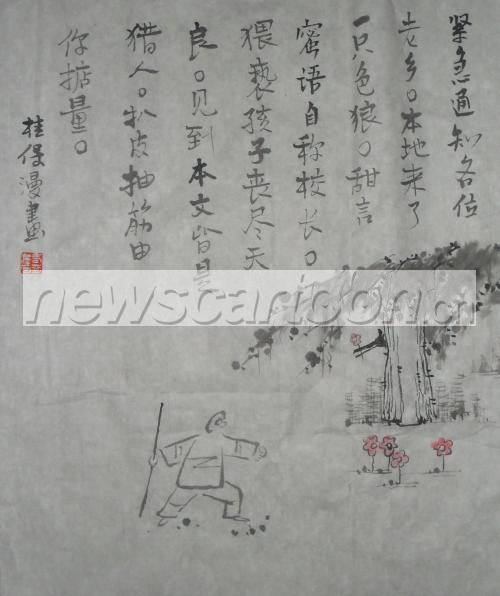 紧急通知各位
老乡。本地来了
一只色狼。甜言
蜜语自称校长。
猥亵孩子丧尽天
良。见到本文皆是
猎人。扒皮抽筋由
你掂量。
桂保漫畫
newscartoon.cn